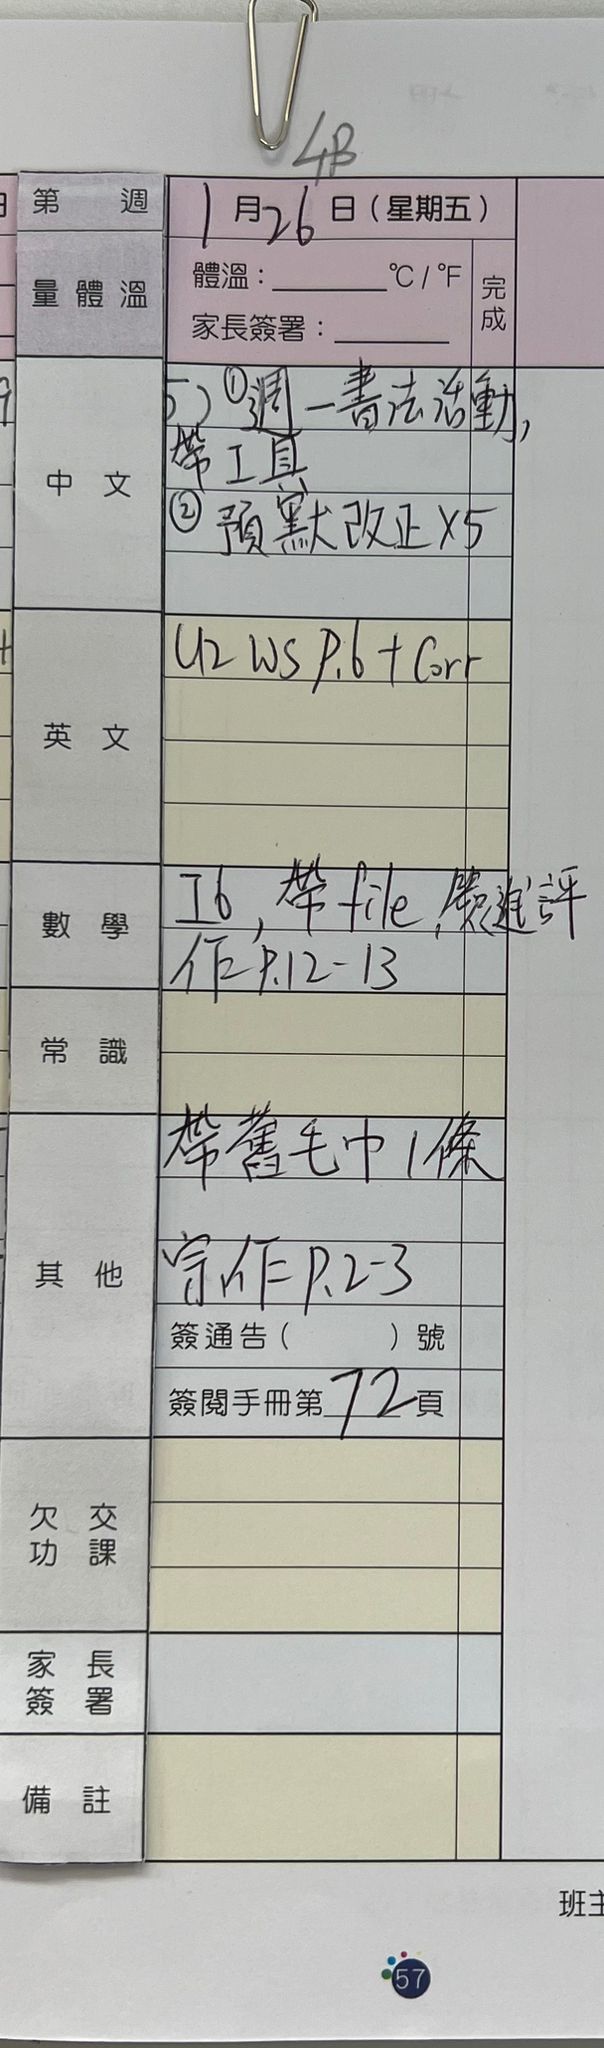 4B
第 週
1月26日(星期五)
量體溫
體溫:______°C/°F
家長簽署:______
完成
中文
5) ①週一書法活動,
帶工具
② 預默改正X5
英文
U2 WS P.6 + Corr
數學
I6, 帶file, 簽進評
作P.12-13
常識
其他
帶舊毛巾1條
宗作P.2-3
簽通告( )號
簽閱手冊第72頁
欠交
功課
家長
簽署
備註
班主
57